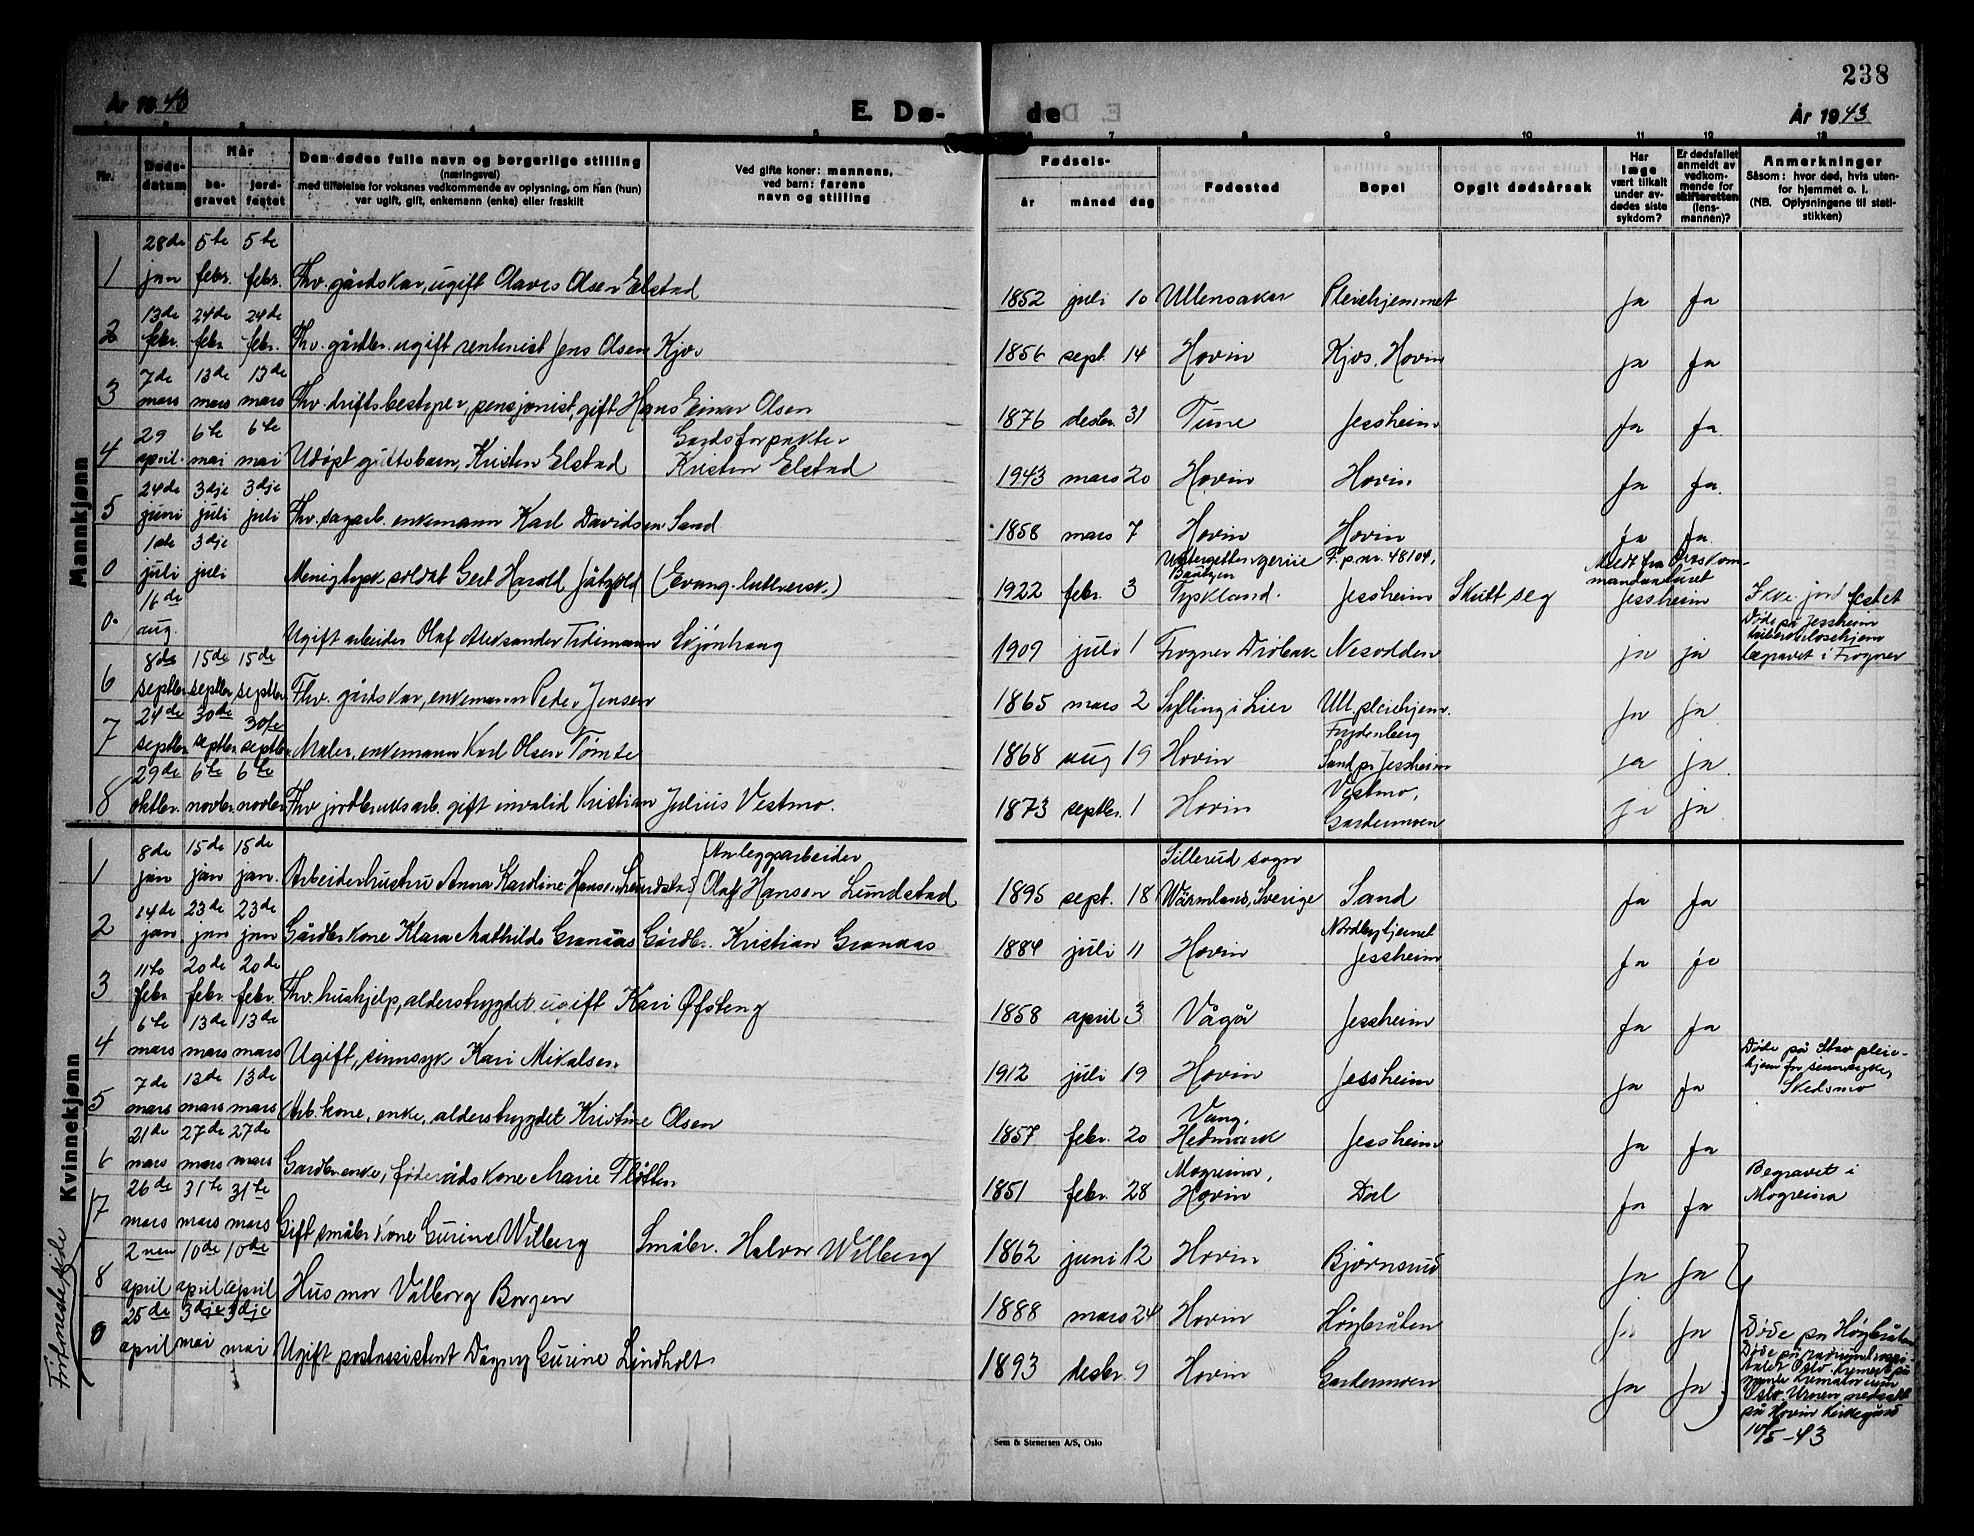 238
År 1943
E. Dø-
de
År 1943
Nr.
Døds-
datum
Når
be-
gravet
jord-
festet
Den dødes fulle navn og borgerlige stilling
(næringsvei)
med tilføielse for voksnes vedkommende av oplysning, om han (hun)
var ugift, gift, enkemann (enke) eller fraskilt
Ved gifte koner: mannens,
ved barn: farens
navn og stilling
Fødsels-
år måned dag
Fødested
Bopel
Opgit dødsårsak
Har
læge
vært tilkalt
under av-
dødes siste
sykdom?
Er dødsfallet
anmeldt av
vedkom-
mende for
skifteretten
(lens-
mannen)?
Anmerkninger
Såsom: hvor død, hvis uten-
for hjemmet o. l.
(NB. Oplysningene til stati-
stikken)
Mannkjønn
28de 5te 5te
1 jan febr. febr. Fhv. gårdskar, ugift Olaves Olsen Elstad 1852 juli 10 Ullensaker Pleiehjemmet ja ja
13de 24de 24de
2 febr. febr. febr. Fhv. gårdbr. ugift rentenist Jens Olsen Kjos 1856 sept. 14 Hovin Kjos, Hovin ja ja
7de 13de 13de
3 mars mars mars Fhv. driftsbestyrer, pensjonist, gift Hans Einar Olsen 1876 desbr. 31 Tune Jessheim ja ja
29 6te 6te Gardsforpakter
4 april mai mai Udøpt guttebarn, Kristen Elstad Kristen Elstad 1943 mars 20 Hovin Hovin ja ja.
24de 3dje 3dje
5 juni juli juli Fhv. sagarb. enkemann Karl Davidsen Sand 1858 mars 7 Hovin Hovin ja ja.
1ste 3dje Bautzen F.p.nr. 48104, Meldt fra
0 juli juli Menig tysk soldat Gert Harald Jätzold (Evang. luthersk.) 1922 febr. 3 Tyskland. Jessheim Skutt seg Jessheim Ikke jordfestet
16de Døde på Jessheim
tuberkulosehjem
0. aug. Ugift arbeider Olaf Aleksander Tidemann Skjønhaug 1909 juli 1 Frogner Drøbak Nesodden ja ja begravet i Frogner
8de 15de 15de
6 septbr. septbr. septbr. Fhv. gårdskar, enkemann Peder Jensen 1865 mars 2 Sylling i Lier Ull. pleiehjem. ja ja
24de 30te 30te Frydenberg
7 septbr. septbr. septbr. Maler, enkemann Karl Olsen Tømte 1868 aug 19 Hovin Sand pr Jessheim ja ja
29de 6te 6te Vestmo,
8 oktbr. novbr. novbr. Fhv jordbruksarb. gift invalid Kristian Julius Vestmo. 1873 septbr. 1 Hovin Gardermoen ja ja
Kvinnekjønn
8de 15de 15de Anleggsarbeider Sillerud sogn
1 jan jan jan. Arbeiderhustru Anna Karoline Hansen Lundstad Olaf Hansen Lundstad 1895 sept. 18 Wärmland, Sverige Sand ja ja
14de 23de 23de Nordbytjernet
2 jan jan jan Gårdbr. kone Klara Mathilde Granaas Gårdbr. Kristian Granaas 1884 juli 11 Hovin Jessheim ja ja
11te 20de 20de
3 febr febr. febr. Fhv. hushjelp, alderstrygdet ugift Kari Øfsteng 1858 april 3 Vågå Jessheim ja ja
6te 13de 13de Døde på pleie-
hjem for sinnsyke,
4 mars mars mars Ugift, sinnsyk Kari Mikalsen 1912 juli 19 Hovin Jessheim ja ja Skedsmo
7de 13de 13de Vang,
5 mars mars mars Arb. kone, enke, alderstrygdet Kristine Olsen 1857 febr. 20 Hedmark Jessheim ja ja
21de 27de 27de Mogreina, Begravet i
6 mars mars mars Gardbr. enke, føderådskone Marie Fløtten 1851 febr. 28 Hovin Dal ja ja Mogreina
26de 31te 31te
7 mars mars mars Gift småbr. kone Gurine Wilberg Småbr. Halvor Wilberg 1862 juni 12 Hovin Bjørnsund ja ja
2nen 10de 10de
8 april april april Husmor Valborg Borgen 1888 mars 24 Hovin Høgbråten ja ja Døde på Høgbråten
25de 3dje 3dje
0 april mai mai Ugift postassistent Dagny Gurine Lindholt 1893 desbr. 9 Hovin Gardermoen ja ja
Døde på radiumhospi-
talet Oslo. Kremert på
Krematorium
Oslo. Urnen nedsatt
på Hovin kirkegård
10/5-43
Sem & Stenersen A/S, Oslo